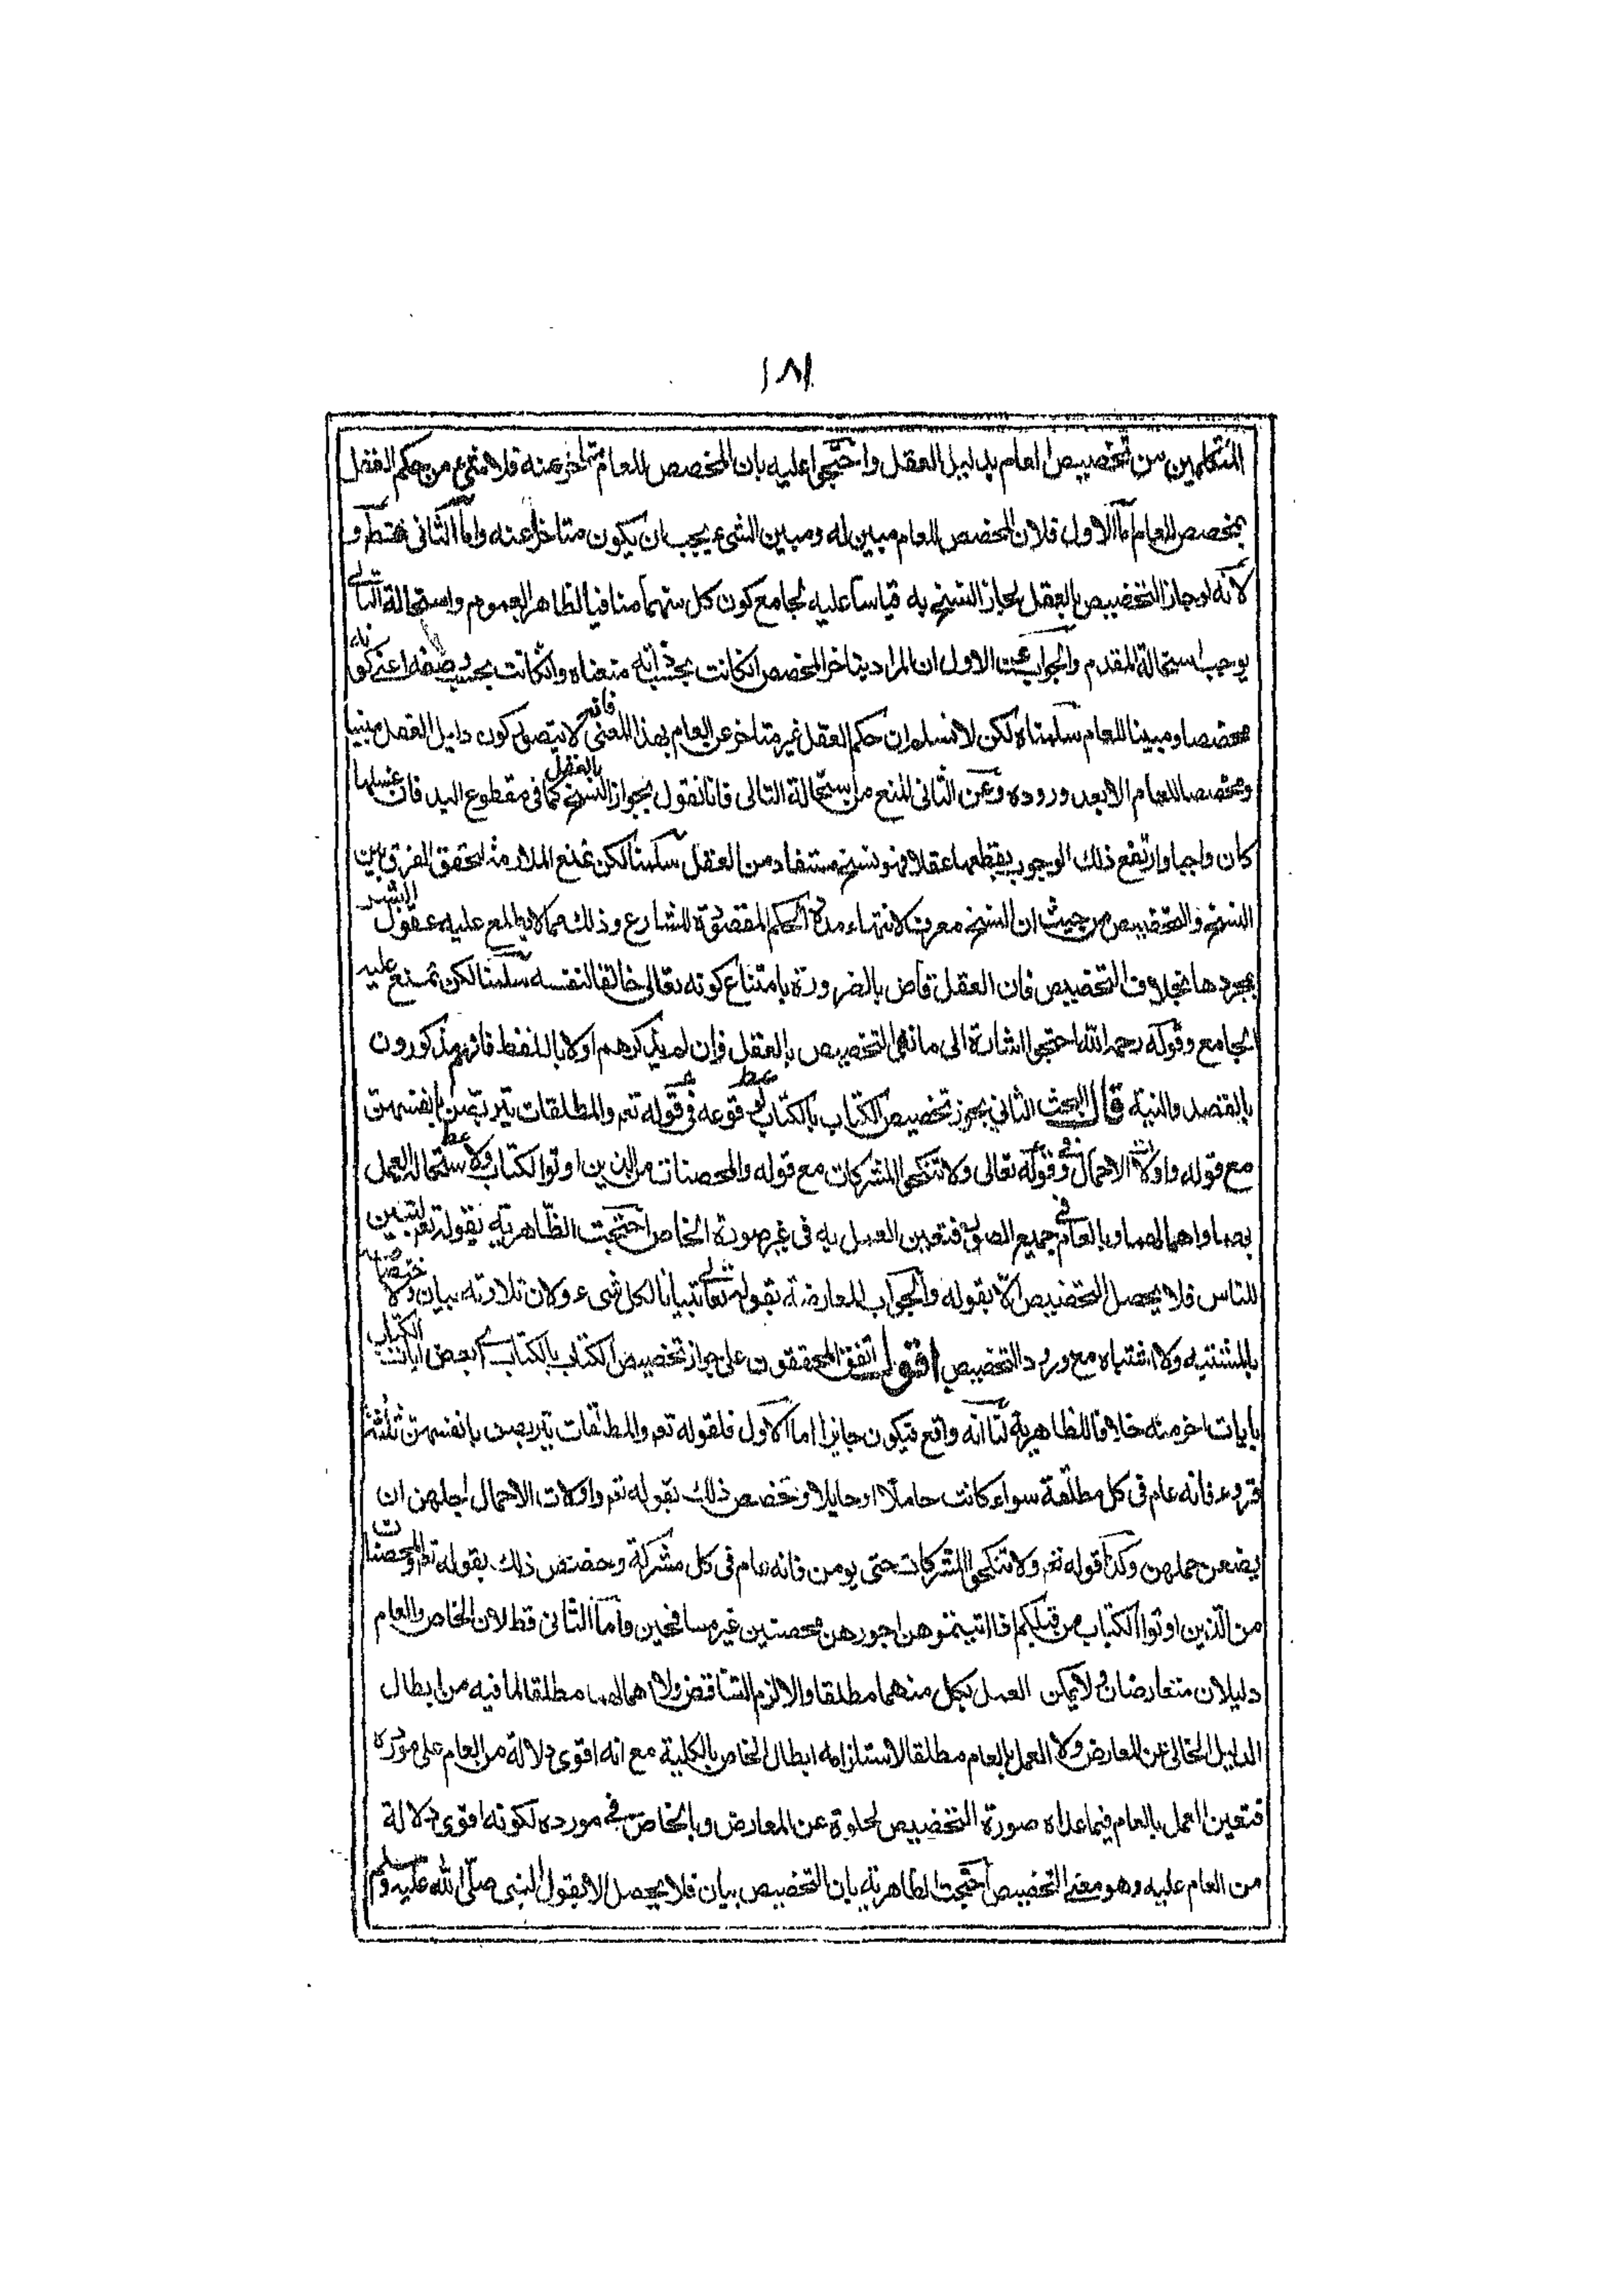 ١٨١
المتكلمين من تخصيص العام بدليل العقل واحتجوا عليه بان المخصص للعام متاخر عنه فلا شئ من حكم العقل
بمخصص للعام اما الاول فلان المخصص للعام مبين له ومبين الشئ يجب ان يكون متاخرا عنه واما الثانى فظ و
لانه لو جاز التخصيص بالعقل لجاز النسخ به قياسا عليه بجامع كون كل منهما منافيا لظاهر العموم واستحالة التالى
يوجب استحالة المقدم والجواب عن الاول ان المراد بتاخر المخصص ان كانت بحسب ذاته منعناه وان كانت بحسب وصفه اعنى كونه
مخصصا ومبينا للعام سلمناه لكن لا نسلم ان حكم العقل غير متاخر عن العام بهذا المعنى فانه لا يتصور كون دليل العقل مبينا
ومخصصا للعام الا بعد وروده وعن الثانى المنع من استحالة التالى فانا نقول بجواز النسخ بالعقل كما فى مقطوع اليد فان غسلها
كان واجبا وارتفع ذلك الوجوب بقطعها عقلا فهو نسخ مستفاد من العقل سلمنا لكن نمنع الملازمة لتحقق الفرق بين
النسخ والتخصيص من حيث ان النسخ معرف لانتهاء مدة الحكم المقصودة للشارع وذلك مما لا يطلع عليه عقول البشر
بمجردها بخلاف التخصيص فان العقل قاض بالضرورة بامتناع كونه تعالى خالقا لنفسه سلمنا لكن نمنع علية
الجامع وقوله رحمه الله احتجوا اشارة الى مانعى التخصيص بالعقل فان لم يذكرهم اولا باللفظ فانهم مذكورون
بالقصد والنية قال البحث الثانى يجوز تخصيص الكتاب بالكتاب لوقوعه فى قوله تع والمطلقات يتربصن بانفسهن
مع قوله واولات الاحمال وفى قوله تعالى ولا تنكحوا المشركات مع قوله والمحصنات من الذين اوتوا الكتاب ولاستحالة العمل
بهما واهمالهما وبالعام فى جميع الصور فتعين العمل به فى غير صورة الخاص احتجت الظاهرية بقوله تع لتبين
للناس فلا يحصل التخصيص الا بقوله والجواب المعارضة بقوله تعالى تبيانا لكل شىء ولان تلاوته بيان ولاختصاصه
بالمشتبه ولا اشتباه مع ورود التخصيص اقول اتفق المحققون على جواز تخصيص الكتاب بالكتاب اى بعض ايات الكتاب
بايات اخر منه خلافا للظاهرية لنا انه واقع فيكون جايزا اما الاول فلقوله تع والمطلقات يتربصن بانفسهن ثلثة
قروء فانه عام فى كل مطلقة سواء كانت حاملا او حايلا وخصص ذلك بقوله تع واولات الاحمال اجلهن ان
يضعن حملهن وكذا قوله تع ولا تنكحوا المشركات حتى يومن فانه عام فى كل مشركة وخصص ذلك بقوله تع والمحصنات
من الذين اوتوا الكتاب من قبلكم اذا اتيتموهن اجورهن محصنين غير مسافحين واما الثانى فظ لان الخاص والعام
دليلان متعارضان ولا يمكن العمل بكل منهما مطلقا والا لزم التناقض ولا اهمالهما مطلقا لما فيه من ابطال
الدليل الخالى عن المعارض ولا العمل بالعام مطلقا لاستلزامه ابطال الخاص بالكلية مع انه اقوى دلالة من العام على مورده
فتعين العمل بالعام فيما عداه صورة التخصيص لخلوة عن المعارض وبالخاص فى مورده لكونه اقوى دلالة
من العام عليه وهو معنى التخصيص احتجت الظاهرية بان التخصيص بيان فلا يحصل الا بقول النبى صلى الله عليه وسلم